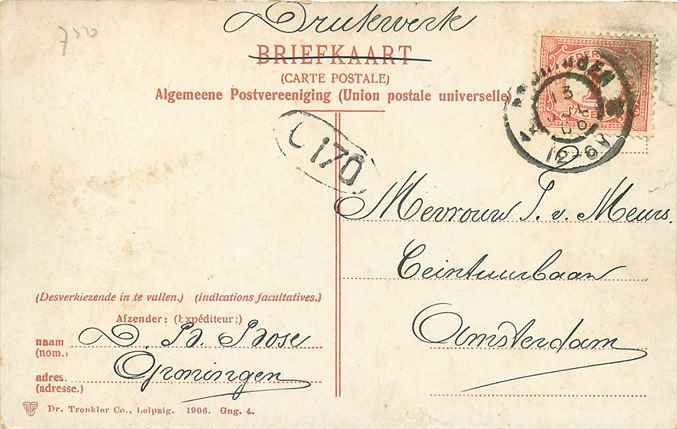 Drukwerk
750
BRIEFKAART
(CARTE POSTALE)
Algemeene Postvereeniging (Union postale universelle)
L 170
12-6V
Mevrouw J. v. Meurs.
Ceintuurbaan
Amsterdam
(Desverkiezende in te vullen.) (indications facultatives.)
Afzender: (Expéditeur:)
naam
(nom.)
Groningen
adres.
(adresse.)
Dr. Trenkler Co., Leipzig. 1906. Gng. 4.